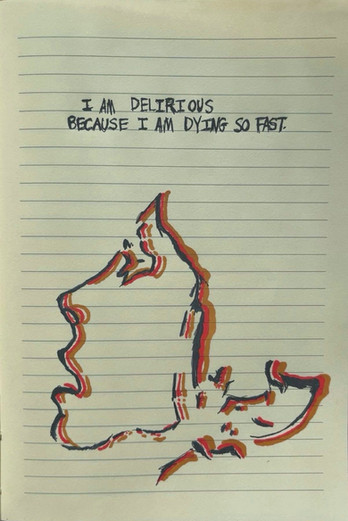 I AM DELIRIOUS
BECAUSE I AM DYING SO FAST.